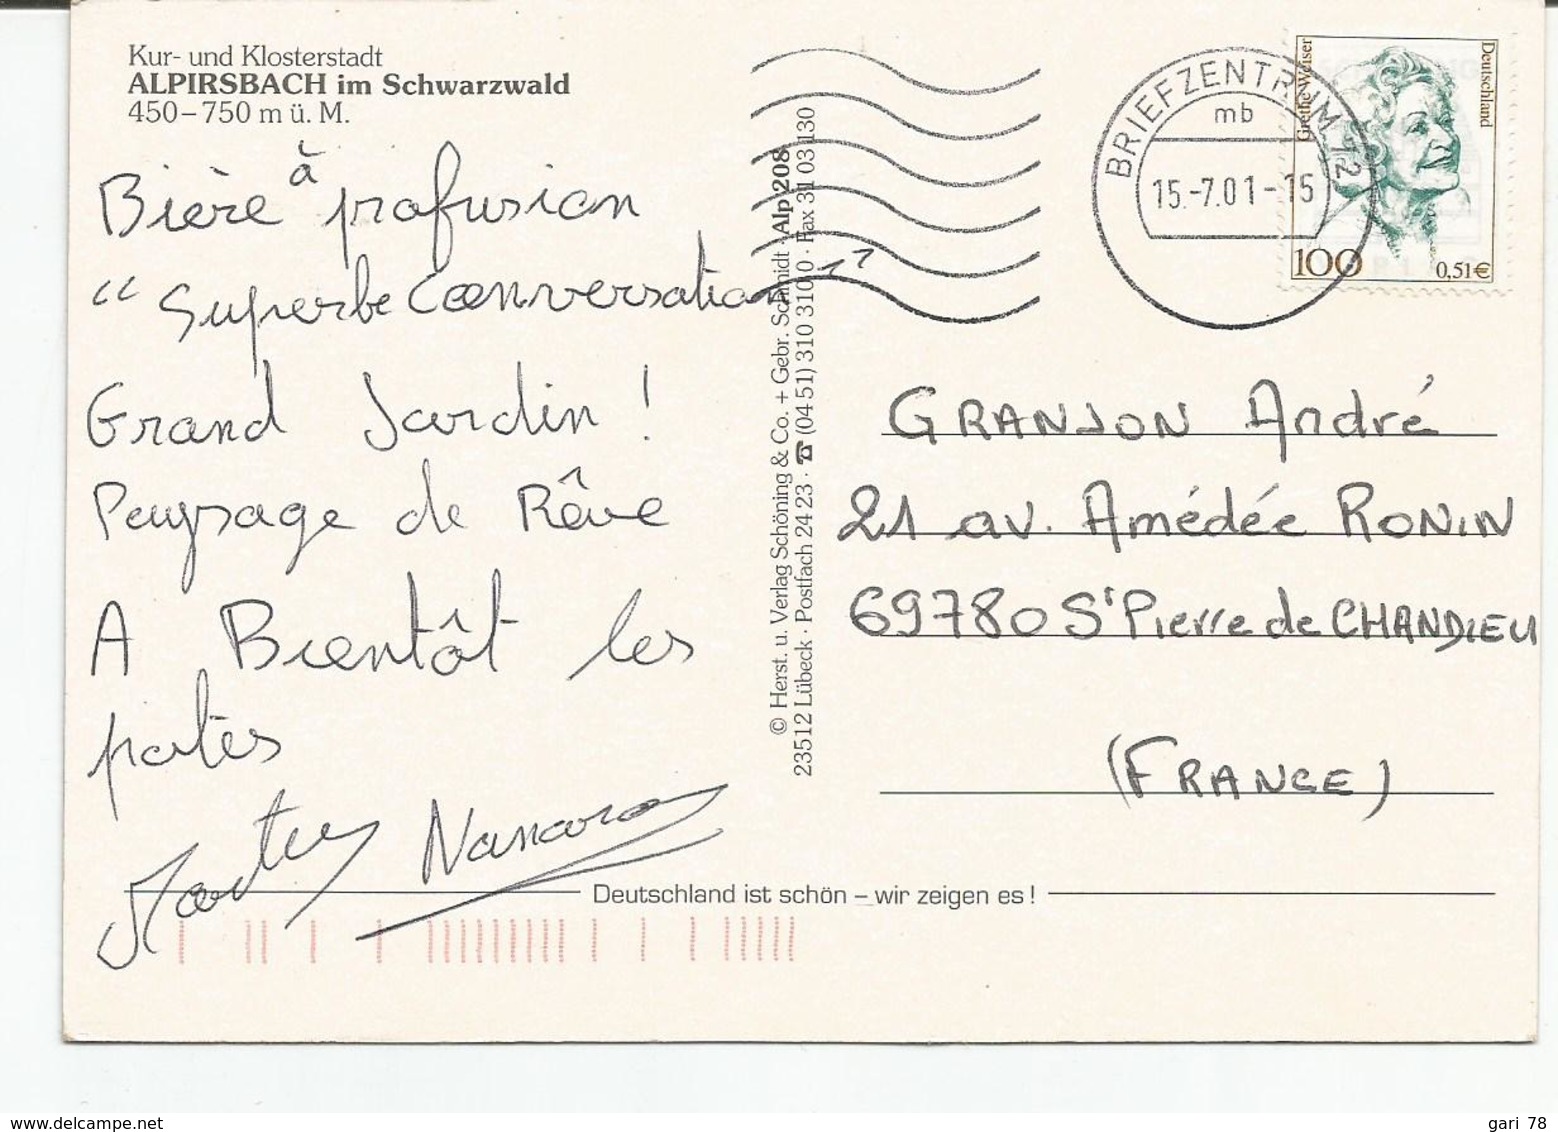 Kur- und Klosterstadt
ALPIRSBACH im Schwarzwald
450–750 m ü. M.
Bière à profusion
“ Superbe Conversation ”
Grand Jardin !
Paysage de Rêve
A Bientôt les
potes
Deutschland ist schön – wir zeigen es !
© Herst. u. Verlag Schöning & Co. + Gebr. Schmidt · Alp 208
23512 Lübeck · Postfach 24 23 · ☎ (04 51) 310 310 · Fax 31 03 130
BRIEFZENTRUM 72
mb
15.-7.01-15
Grethe Weiser
Deutschland
100
0,51€
GRANJON André
21 av. Amédée RONIN
69780 St Pierre de CHANDIEU
(FRANCE)
gari 78